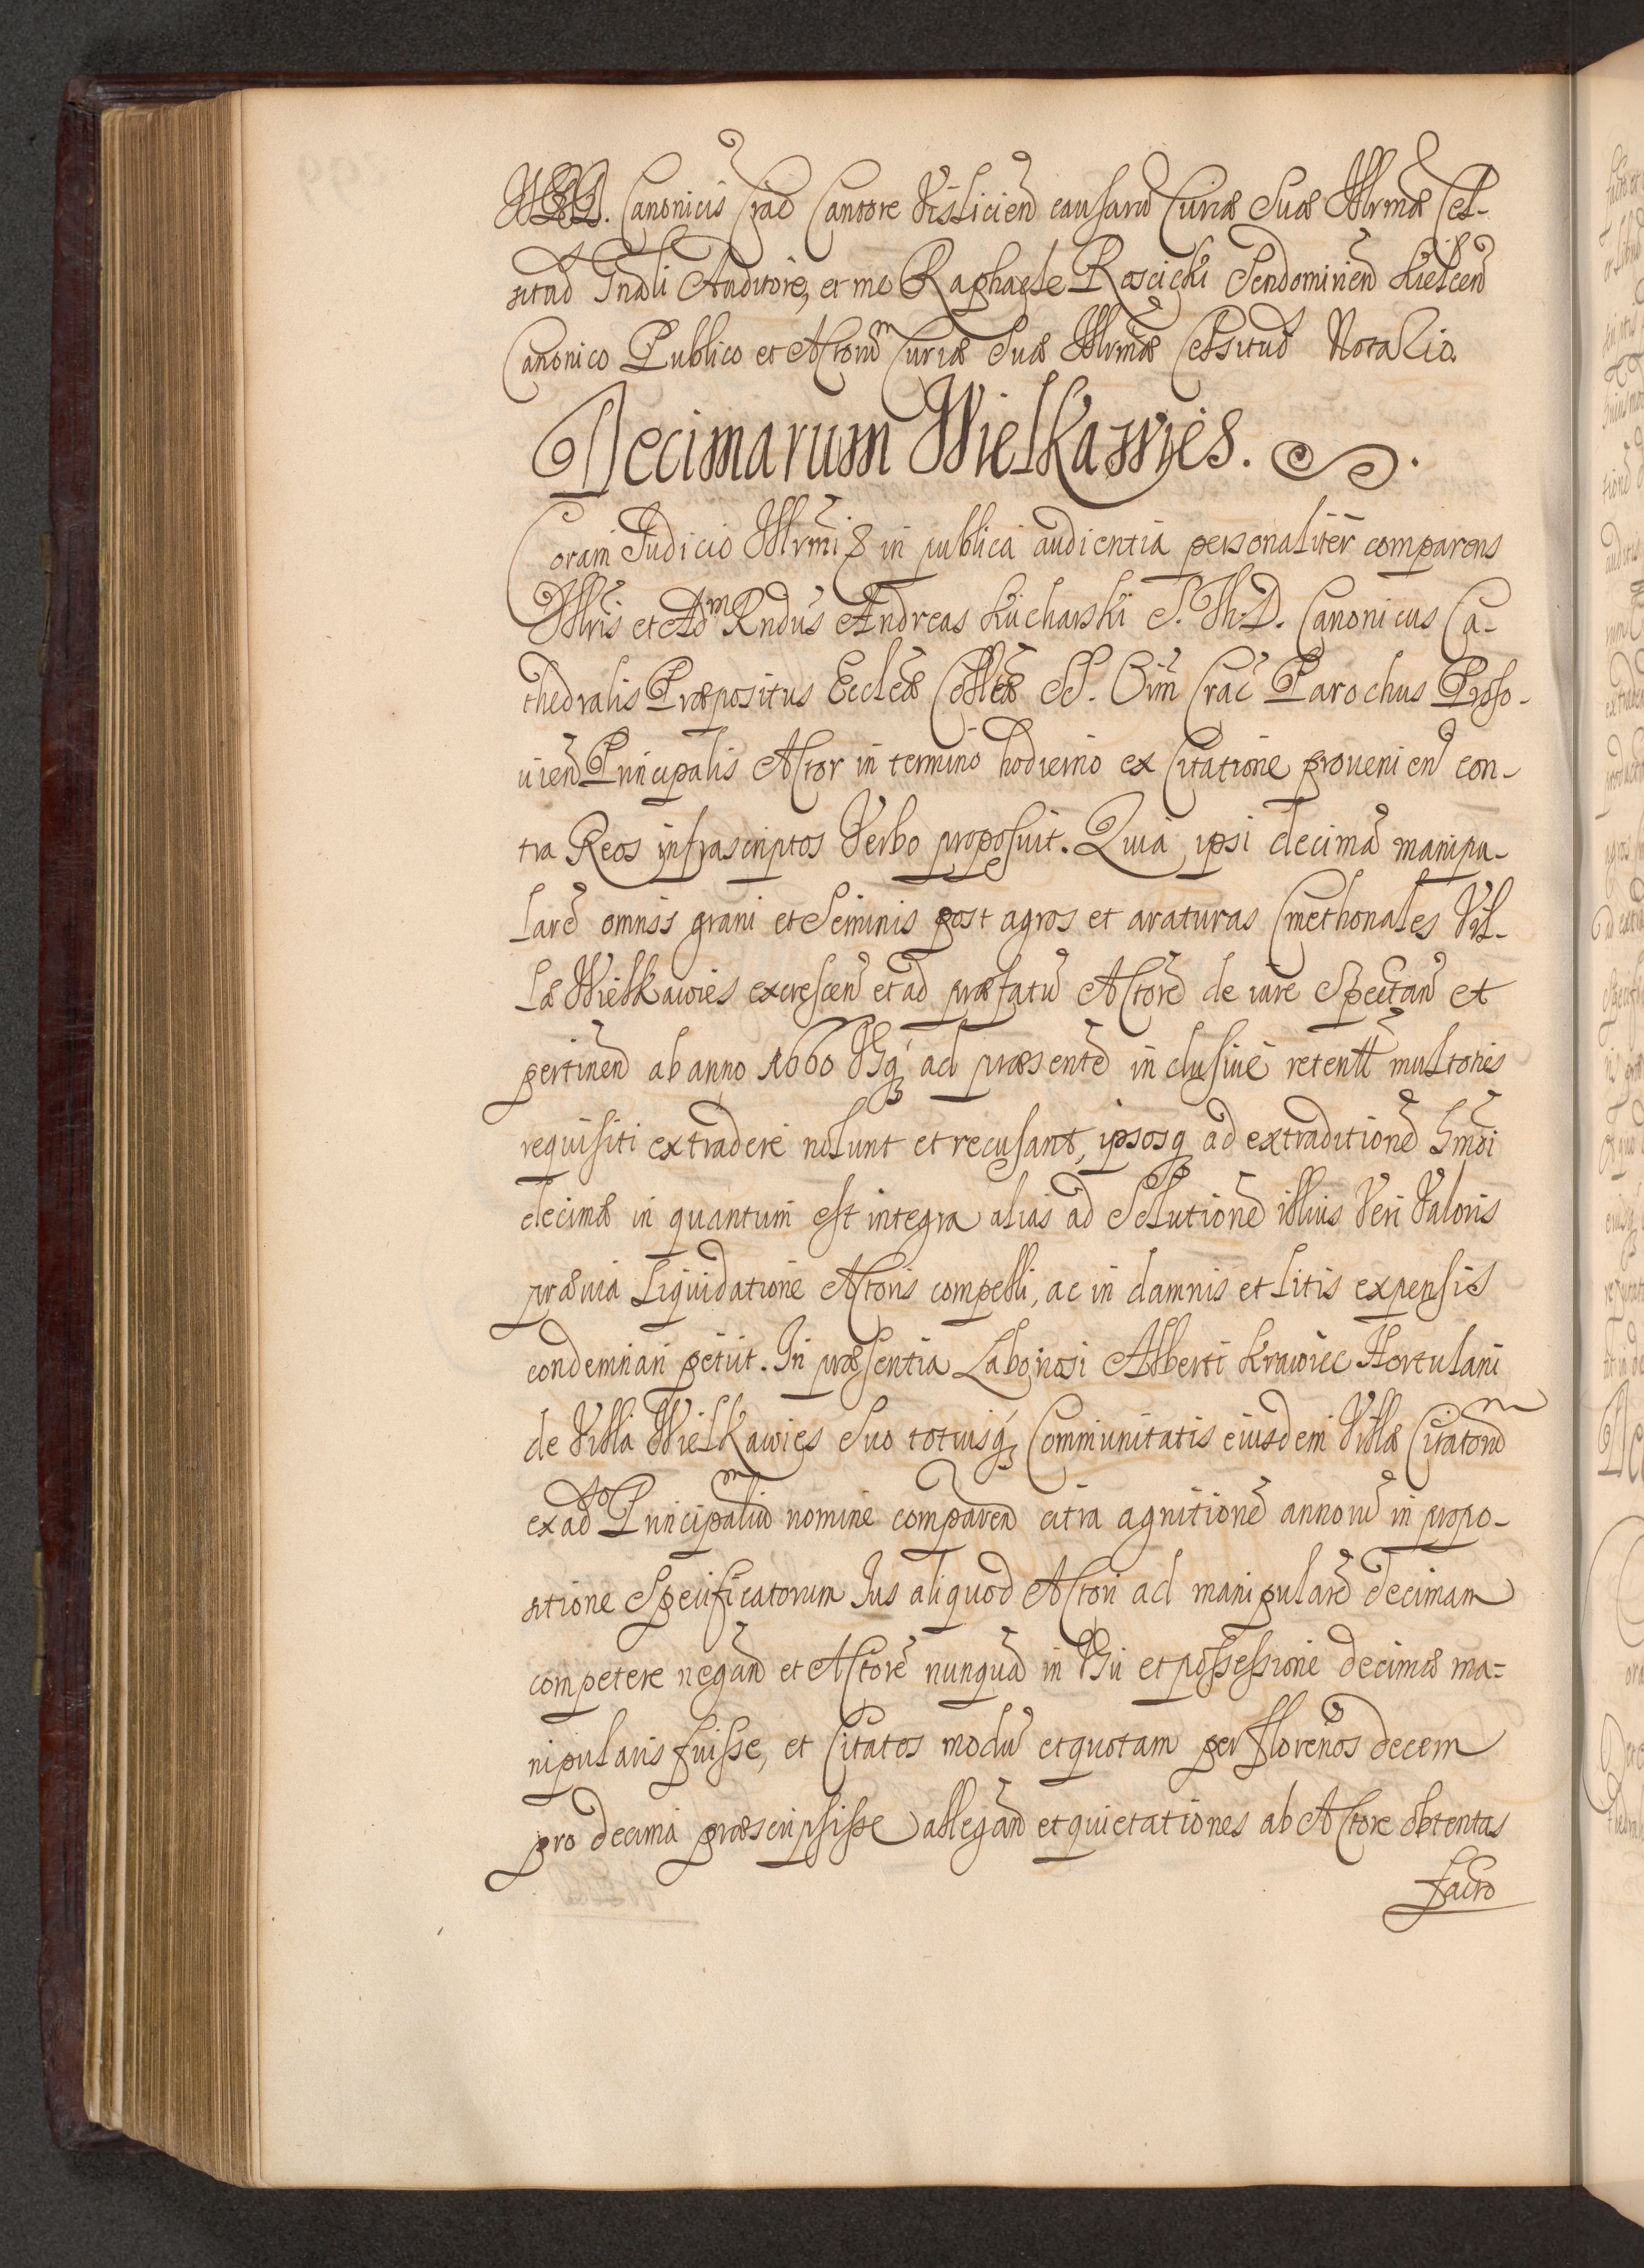 Canonicis Crac̄ Cantore Visliciēn causarū Curiæ Suæ Illrmæ Cel-
situd Gn̄ali Auditore, et me Raphaele Roscicki Sendomiriēn Kielcēn
Canonico Publico et Actorum Curiæ Suæ Illrmæ Celsitud Notario.
Decimarum Wielkawies.
Coram Judicio Illrmi & in publica audientia personaliter comparens
Illris et Adm Rndus Andreas Kucharski S. Th. D. Canonicus Ca-
thedralis Præpositus Eccleæ Colltæ SS. Oim Crac̄ Parochus Proso-
uiēn Principalis Actor in termino hodierno ex Citatione prouenieñ con-
tra Reos infrascriptos Verbo proposuit. Quia ipsi decimā manipu-
larē omnis grani et Seminis post agros et araturas Cmethonales Vil-
læ Wielkawies excrescēn et ad præfatū Actorē de iure Spectañ et
pertinēn ab anno 1660 Vsq; ad præsentē inclusiuè retentā multoties
requisiti extradere nolunt et recusant, ipsosq ad extraditionē hm̄oi
decimæ in quantum est integra alias ad Solutionē illius Veri Valoris
præuia Liquidatione Actoris compelli, ac in damnis et Litis expensis
condemnari petiit. In præsentia Laboriosi Alberti Krawiec Hortulani
de Villa Wielkawies Suo totiusq; Communitatis eiusdem Villæ Citatorum
ex adto Principalium nomine comparēn citra agnitionē annorū in propo-
sitione Specificatorum Jus aliquod Actori ad manipularē decimam
competere negāñ et Actorē nunquā in Vsu et possessione decimæ ma-
nipularis fuisse, et Citatos modū et quotam per florenos decem
pro decima præscripsisse allegāñ et quietationes ab Actore obtentas
facto